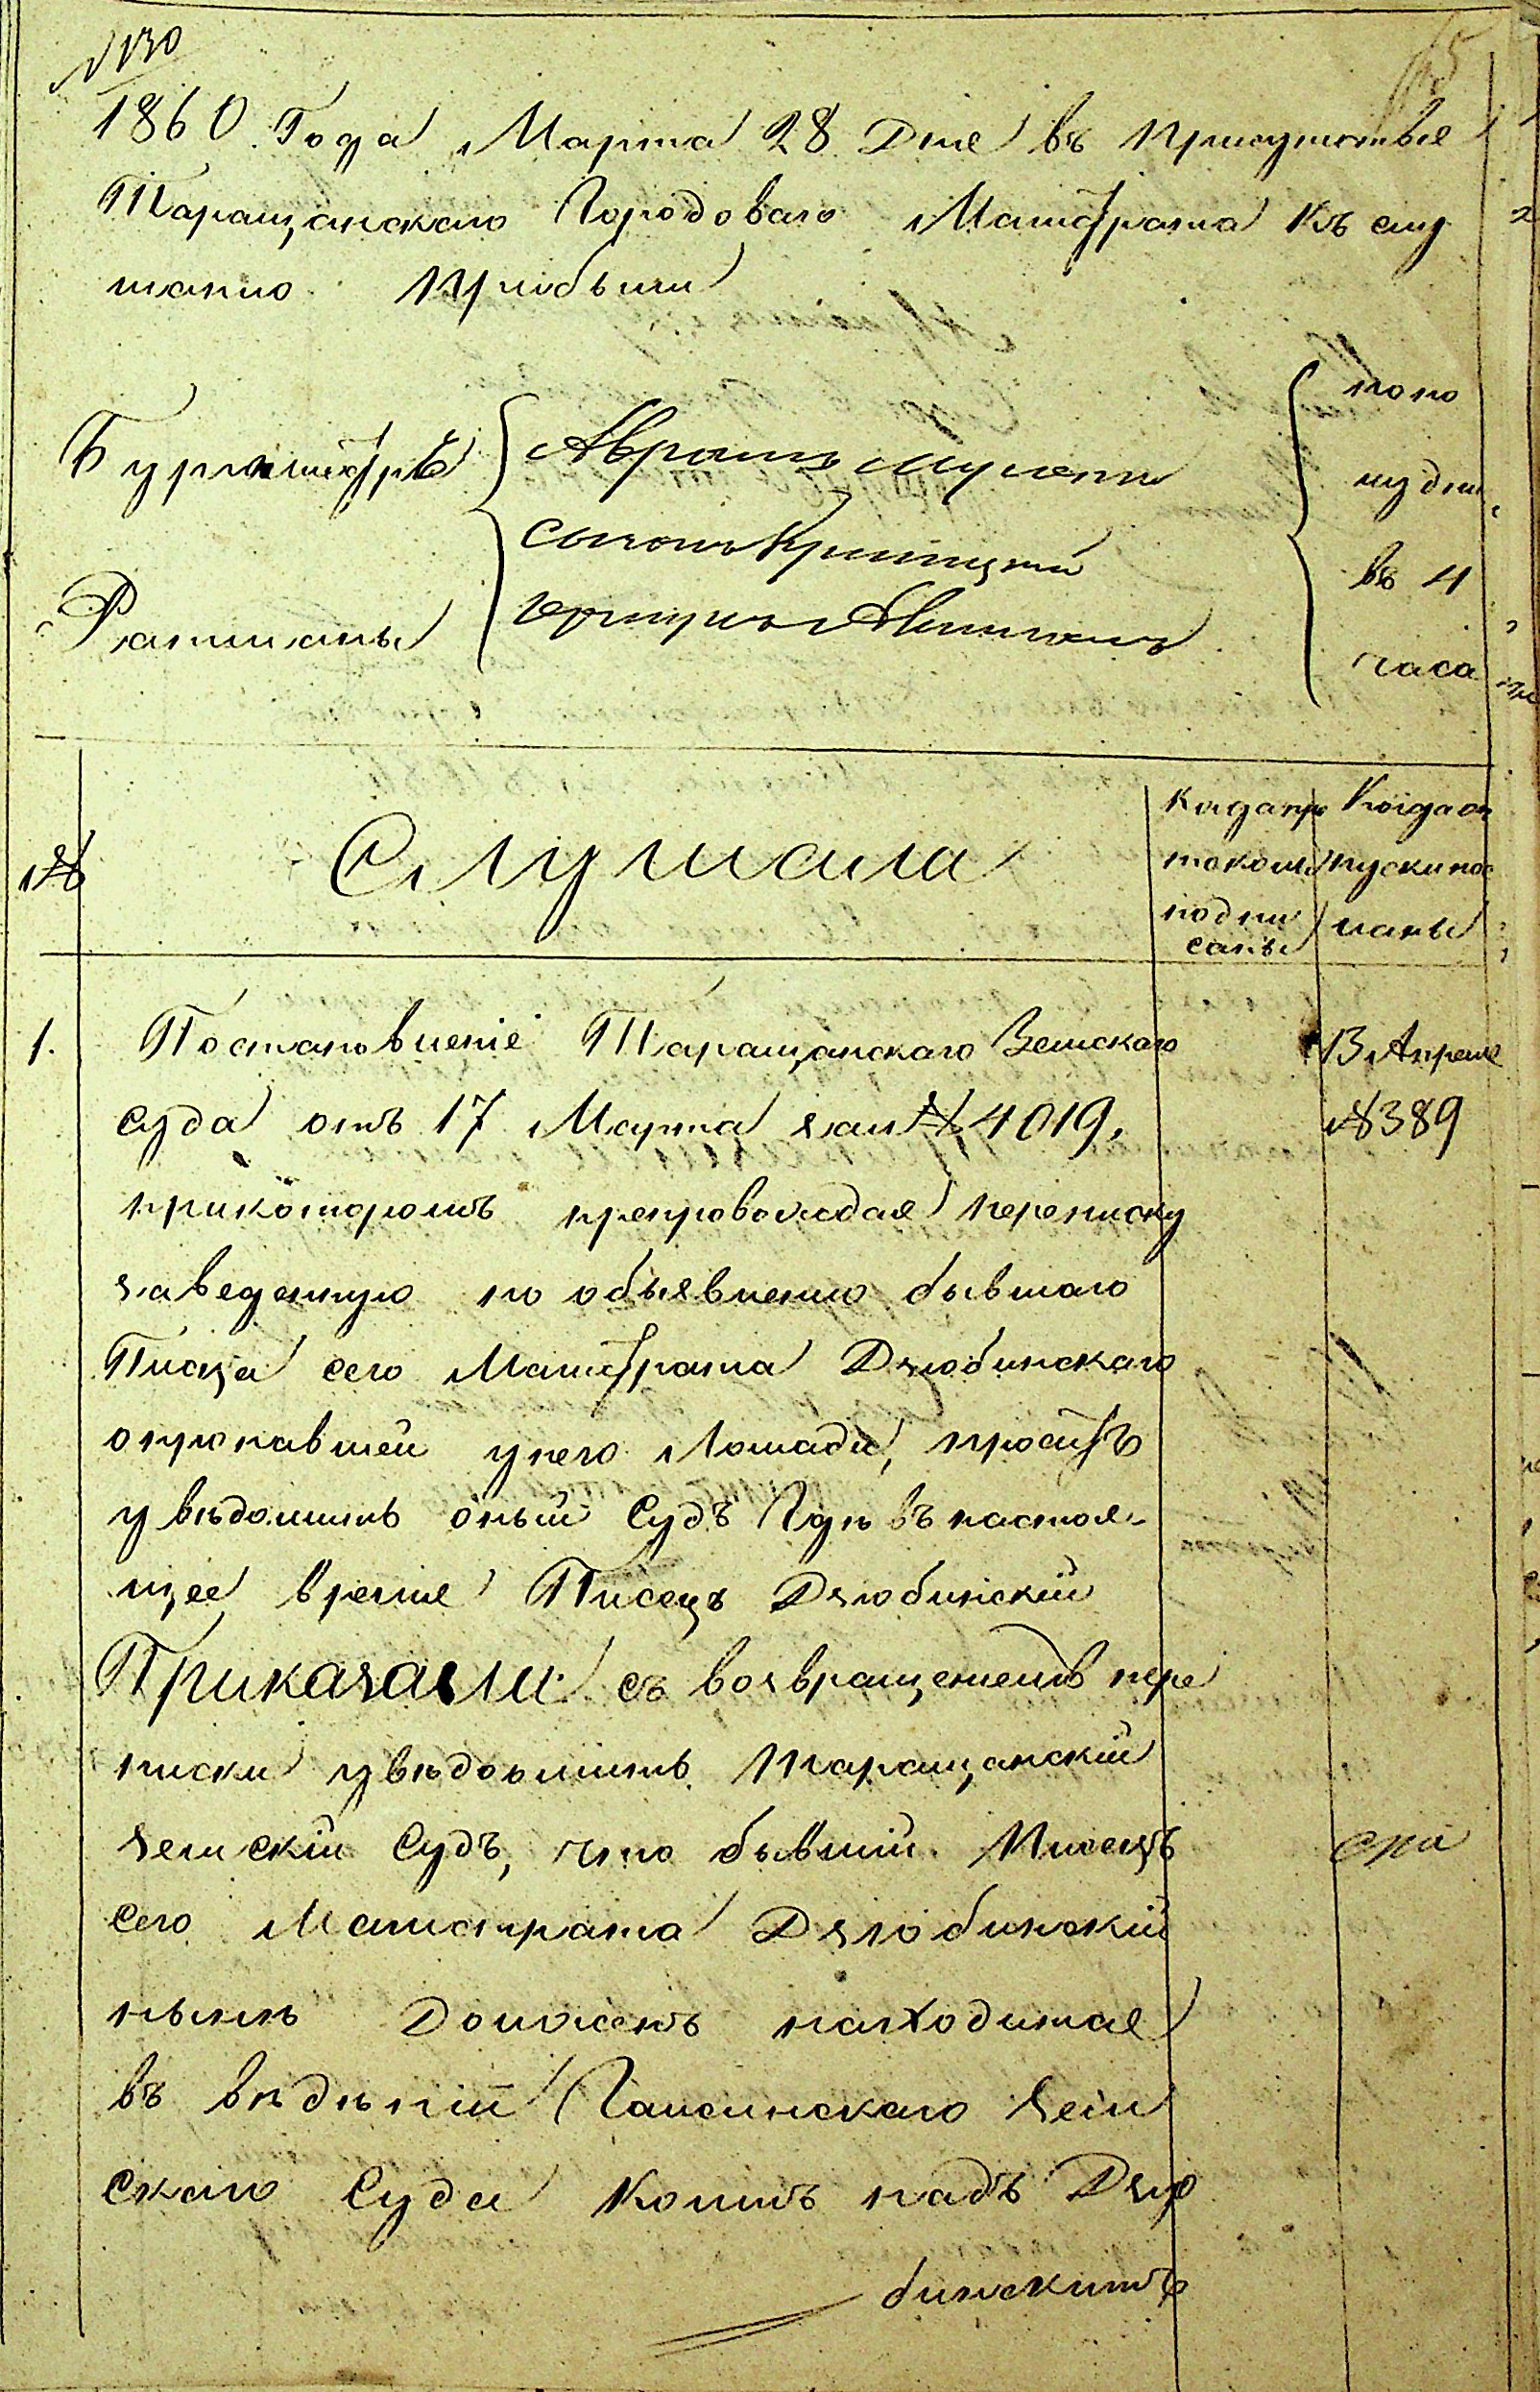 № 130
1860 Года Марта 28 Дня въ присутствіе
Таращанскаго Городоваго Магистрата къ слу
шанію прибыли
Бургмистръ
Ратманы
Аврамъ
попо
лудни
въ 4
часа
№
Слушали
Когда про
токолы
подпи
саны
Когда от
пуски пос
ланы
1.
Постановленіе Таращанскаго Земскаго
суда отъ 17 Марта за № 4019,
прикоторомъ препровождая переписку
заведенную по объявленію бывшаго
Писца сего Магистрата Дзюбинскаго
опропавшей унего Лошади, проситъ
увѣдомить оный Судъ Гдѣ въ настоя-
щее время Писецъ Дзюбинскій
Приказали: съ возвращеніемъ пере
писки увѣдомить Таращанскій
Земскій Судъ, что бывшій Писецъ
сего Магистрата Дзюбинскій
нынѣ Долженъ находится
въ вѣдѣніи Гайсинскаго Зем
скаго Суда коимъ надъ Дзю
бинскимъ
13 Апреля
№ 389